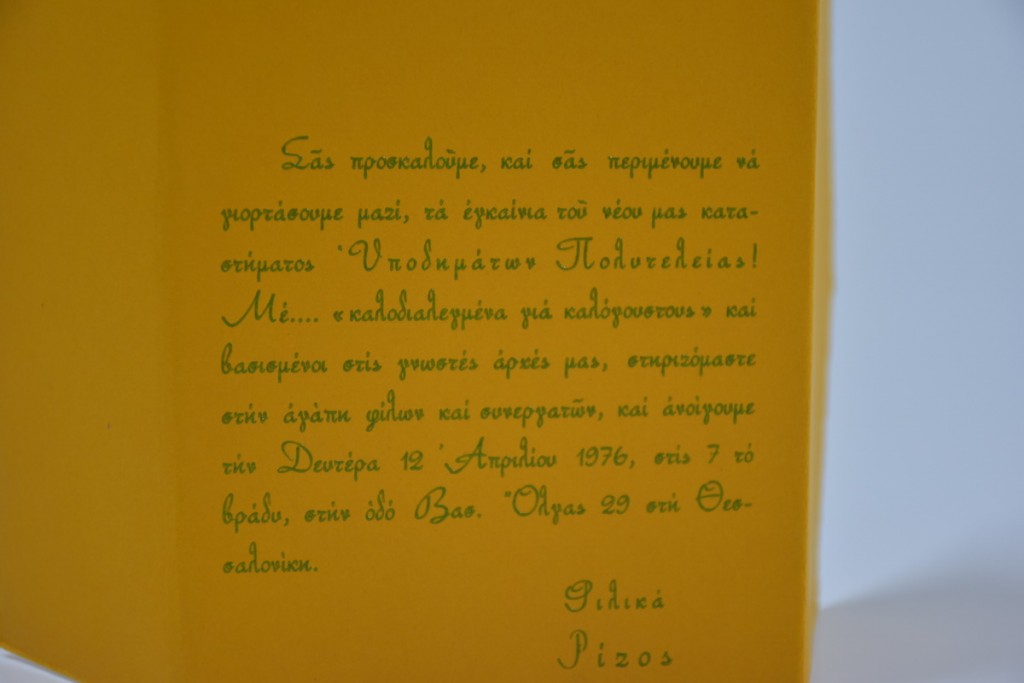 Σᾶς προσκαλοῦμε, καί σᾶς περιμένουμε νά
γιορτάσουμε μαζί, τά ἐγκαίνια τοῦ νέου μας κατα-
στήματος Ὑποδημάτων Πολυτελείας!
Μέ.... «καλοδιαλεγμένα γιά καλόγουστους» καί
βασισμένοι στίς γνωστές ἀρχές μας, στηριζόμαστε
στήν ἀγάπη φίλων καί συνεργατῶν, καί ἀνοίγουμε
τήν Δευτέρα 12 Ἀπριλίου 1976, στίς 7 τό
βράδυ, στήν ὁδό Βασ. Ὄλγας 29 στή Θεσ-
σαλονίκη.
Φιλικά
Ρίζος